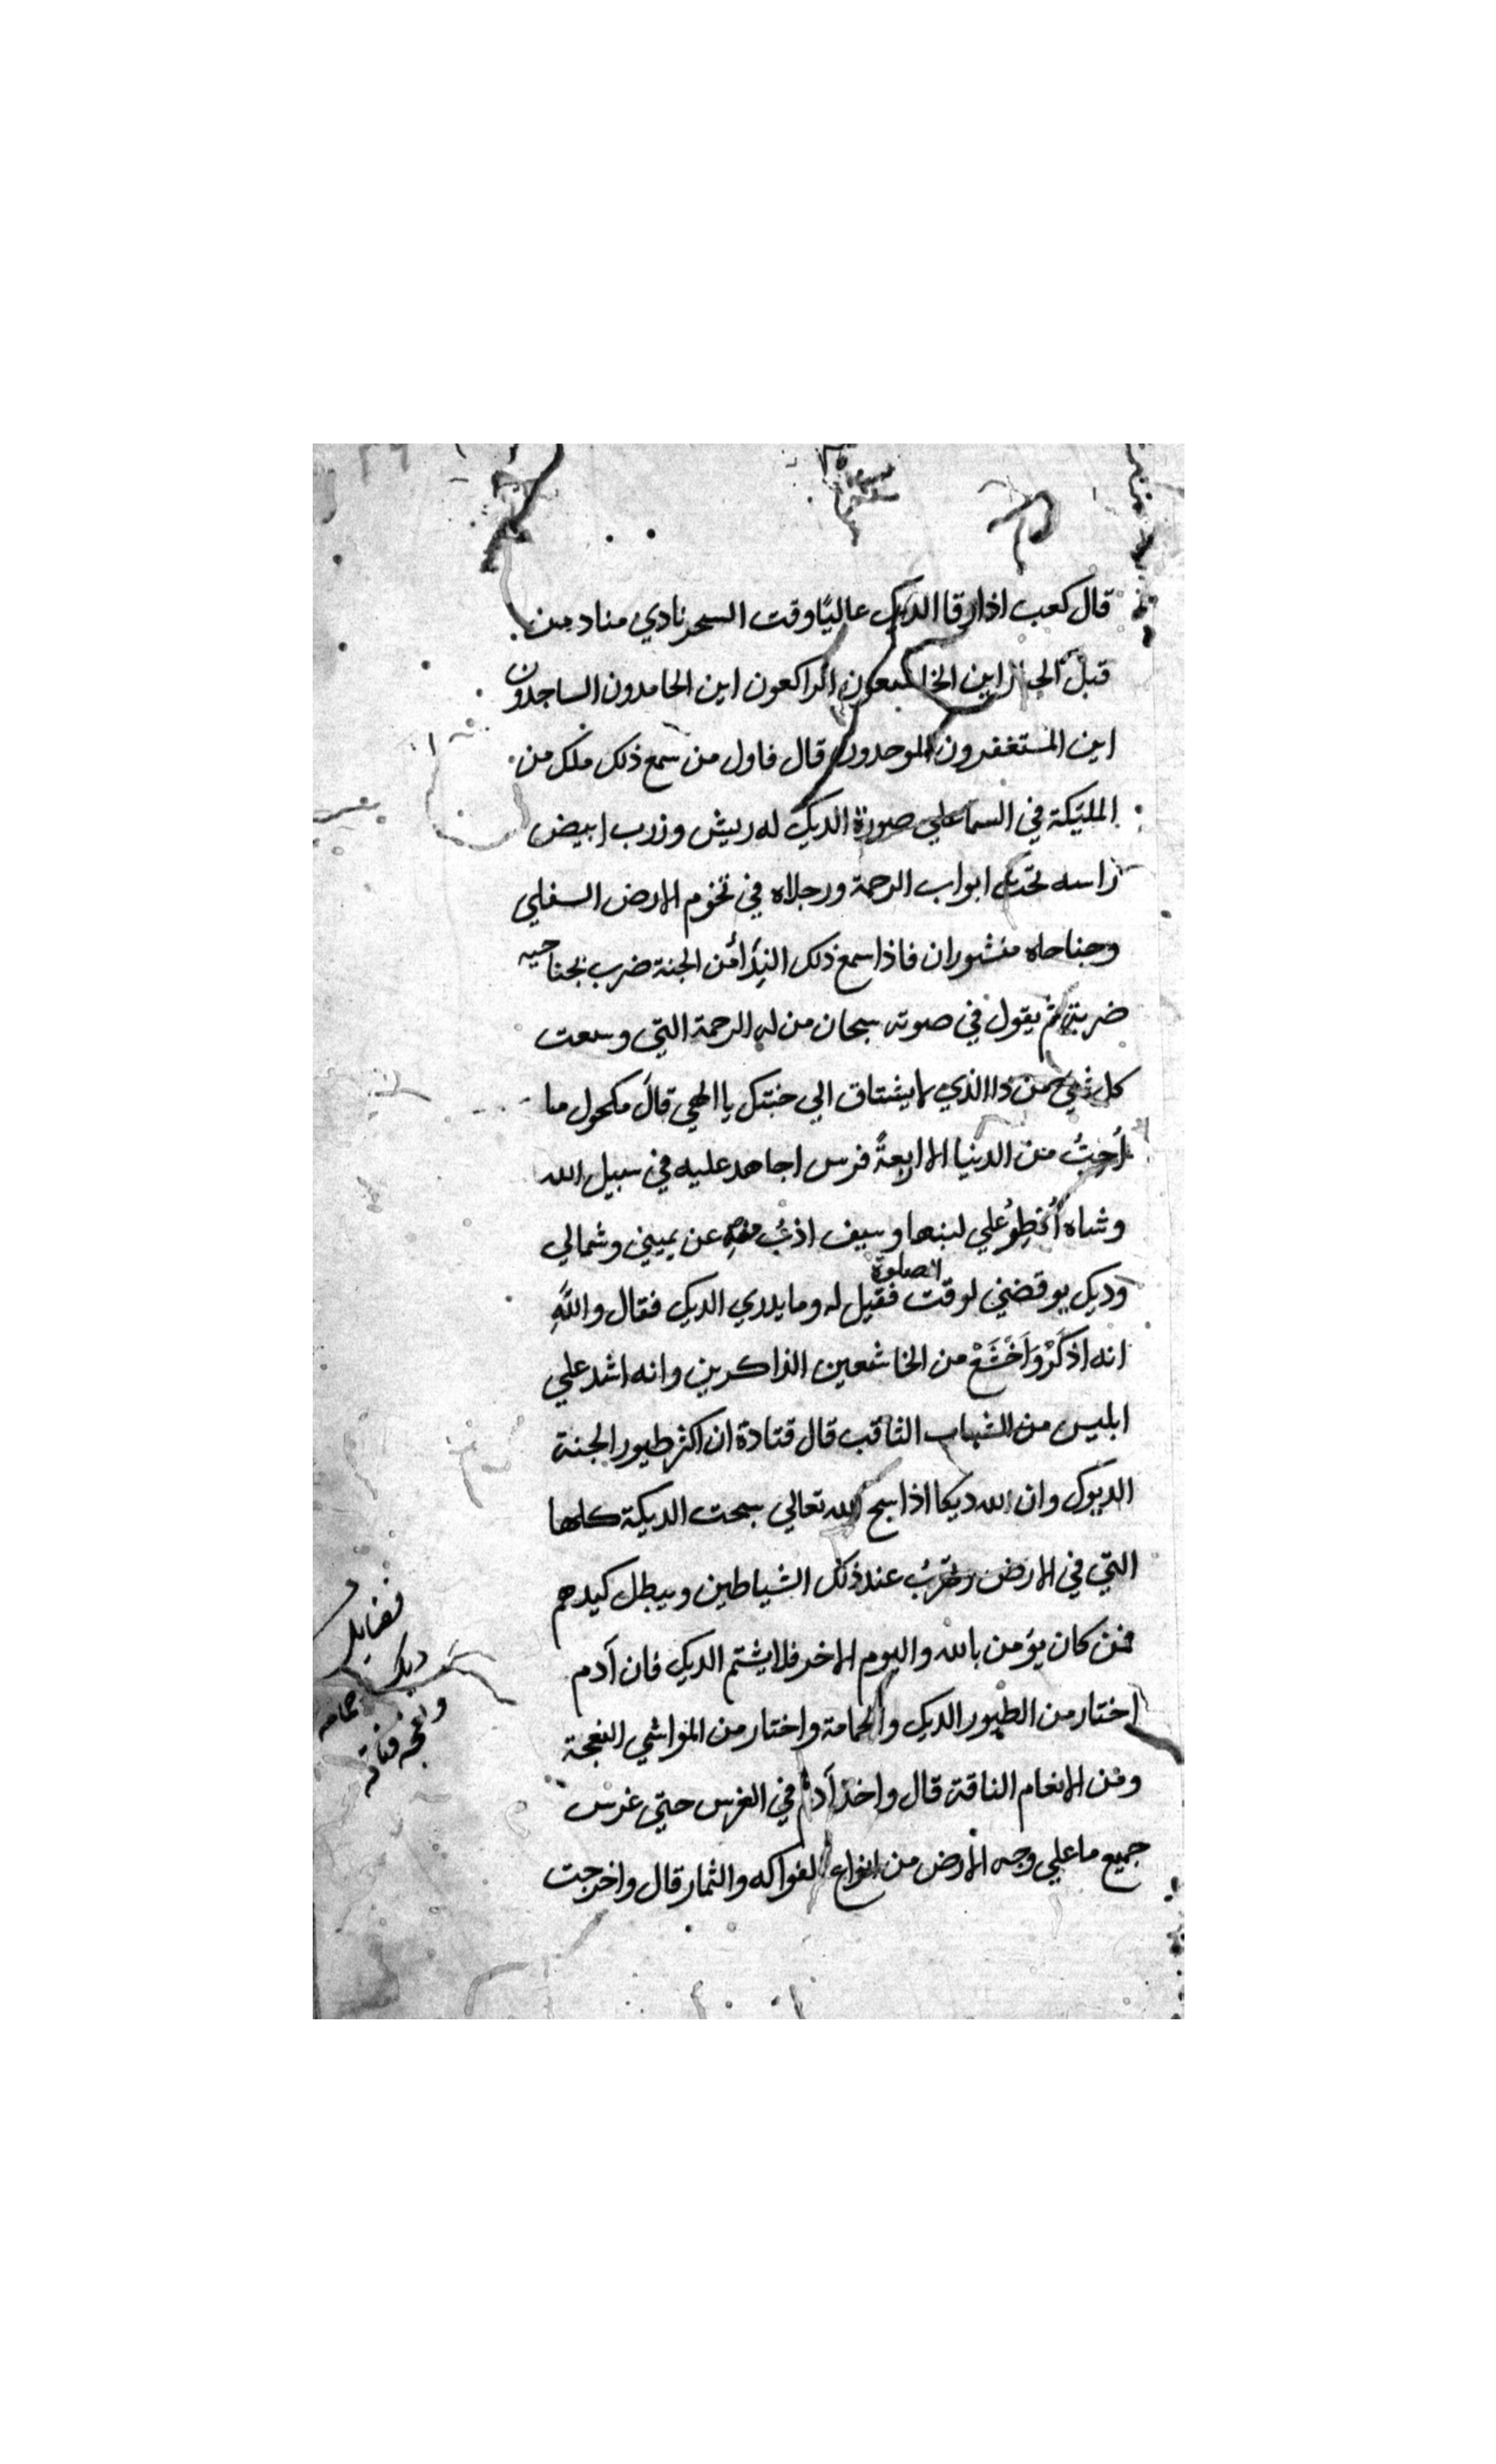 قال كعب اذا زقا الديك عاليًا وقت السحر نادي مناد من
قبل اين الخاشعون الراكعون اين الحامدون الساجدون
اين المستغفرون الموحدون قال فاول من سمع ذلك ملك من
المليكة في السما علي صورة الديك له ريش وزرب ابيض
راسه تحت ابواب الرحمة ورجلاه في تخوم الارض السفلي
وجناحاه منشوران فاذا سمع ذلك الندا من الجنة ضرب بجناحيه
ضربتين ثم يقول في صوته سبحان من له الرحمة التي وسعت
كل شي من ذا الذي لا يشتاق الي جنتك يا الهي قال مكحول ما
أحبُّ من الدنيا الا اربعةً فرس اجاهد عليه في سبيل الله
وشاه أفطِرُ علي لبنها وسيف اذبُ عن يميني وشمالي
وديك يوقضني لوقت الصلوة فقيل له وما يدري الديك فقال واللَّهِ
انه اذكَرْ وَاَخْشَعْ من الخاشعين الذاكرين وانه اشد علي
ابليس من الشهاب الثاقب قال قتادة ان اكثر طيور الجنة
الديوك وان لله ديكا اذا سبح الله تعالي سبحت الديكة كلها
التي في الارض وتهربُ عند ذلك الشياطين ويبطل كيدهم
فمن كان يؤمن بالله واليوم الاخر فلا يشتم الديك فان آدم
اختار من الطيور الديك والحمامة واختار من المواشي النعجة
ومن الانعام الناقة قال واخذ آدم في الغرس حتي غرس
جميع ما علي وجه الارض من انواع الفواكه والثمار قال واخرجت
فضايل
ديك
حمامه
ونعجه وناقه